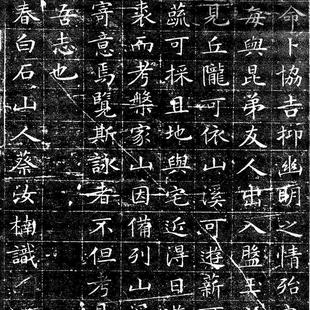 命卜協吉抑幽明之情殆
每與昆弟友人出入盤玉
見丘隴可依山溪可遊薪可
蔬可採且地與宅近得日
裘而考槃家山因備列山
寄意焉覽斯詠者不但考
吾志也
春白石山人蔡汝楠識